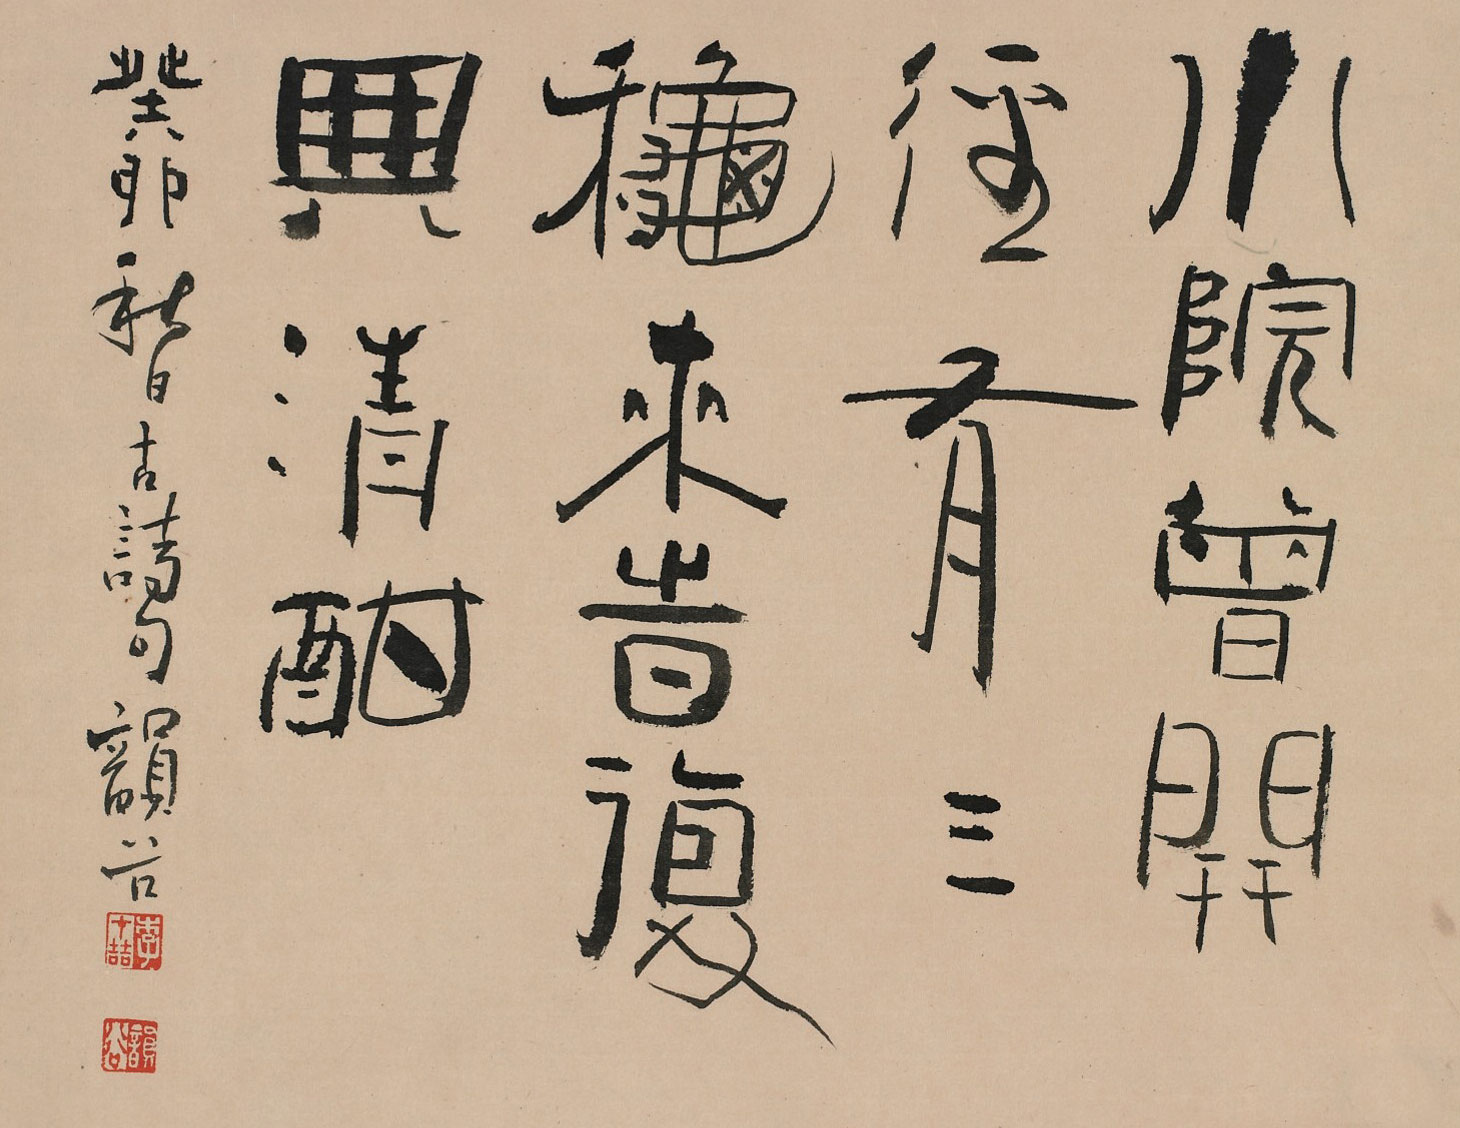 小院曾開
徑有三
龝來旹復
興清酣
癸卯秋日古詩句韻谷
韻谷